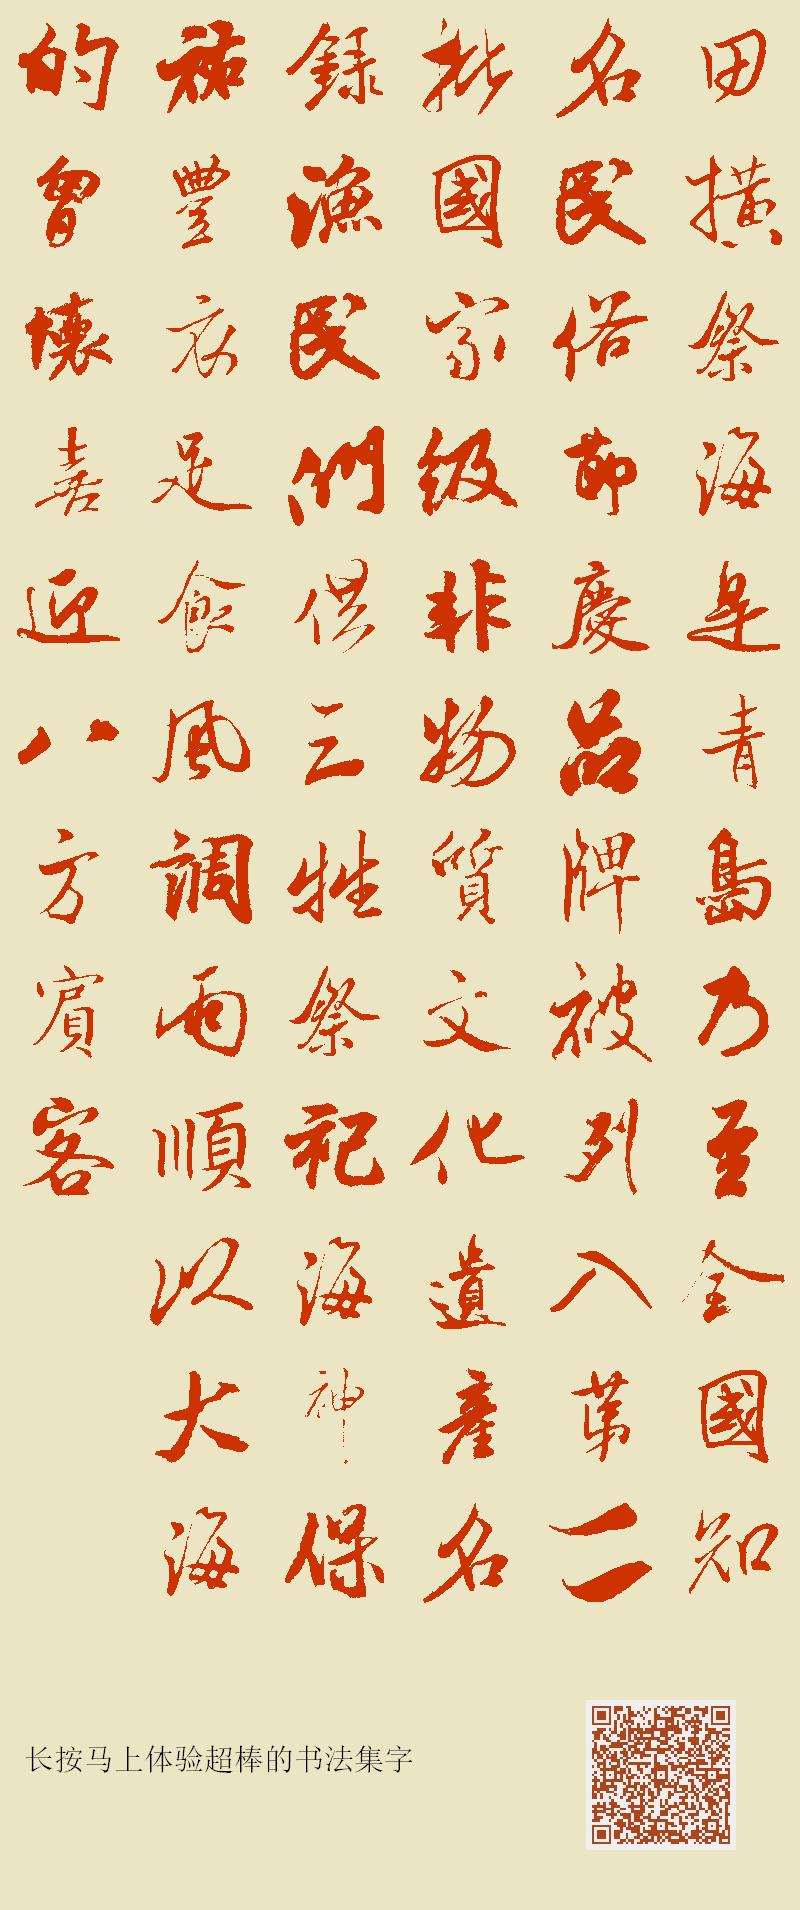 田橫祭海是青島乃至全國知
名民俗節慶品牌被列入第二
批國家級非物質文化遺產名
錄漁民們供三牲祭祀海神保
祐豐衣足食風調雨順以大海
的胷懷喜迎八方賓客
长按马上体验超棒的书法集字